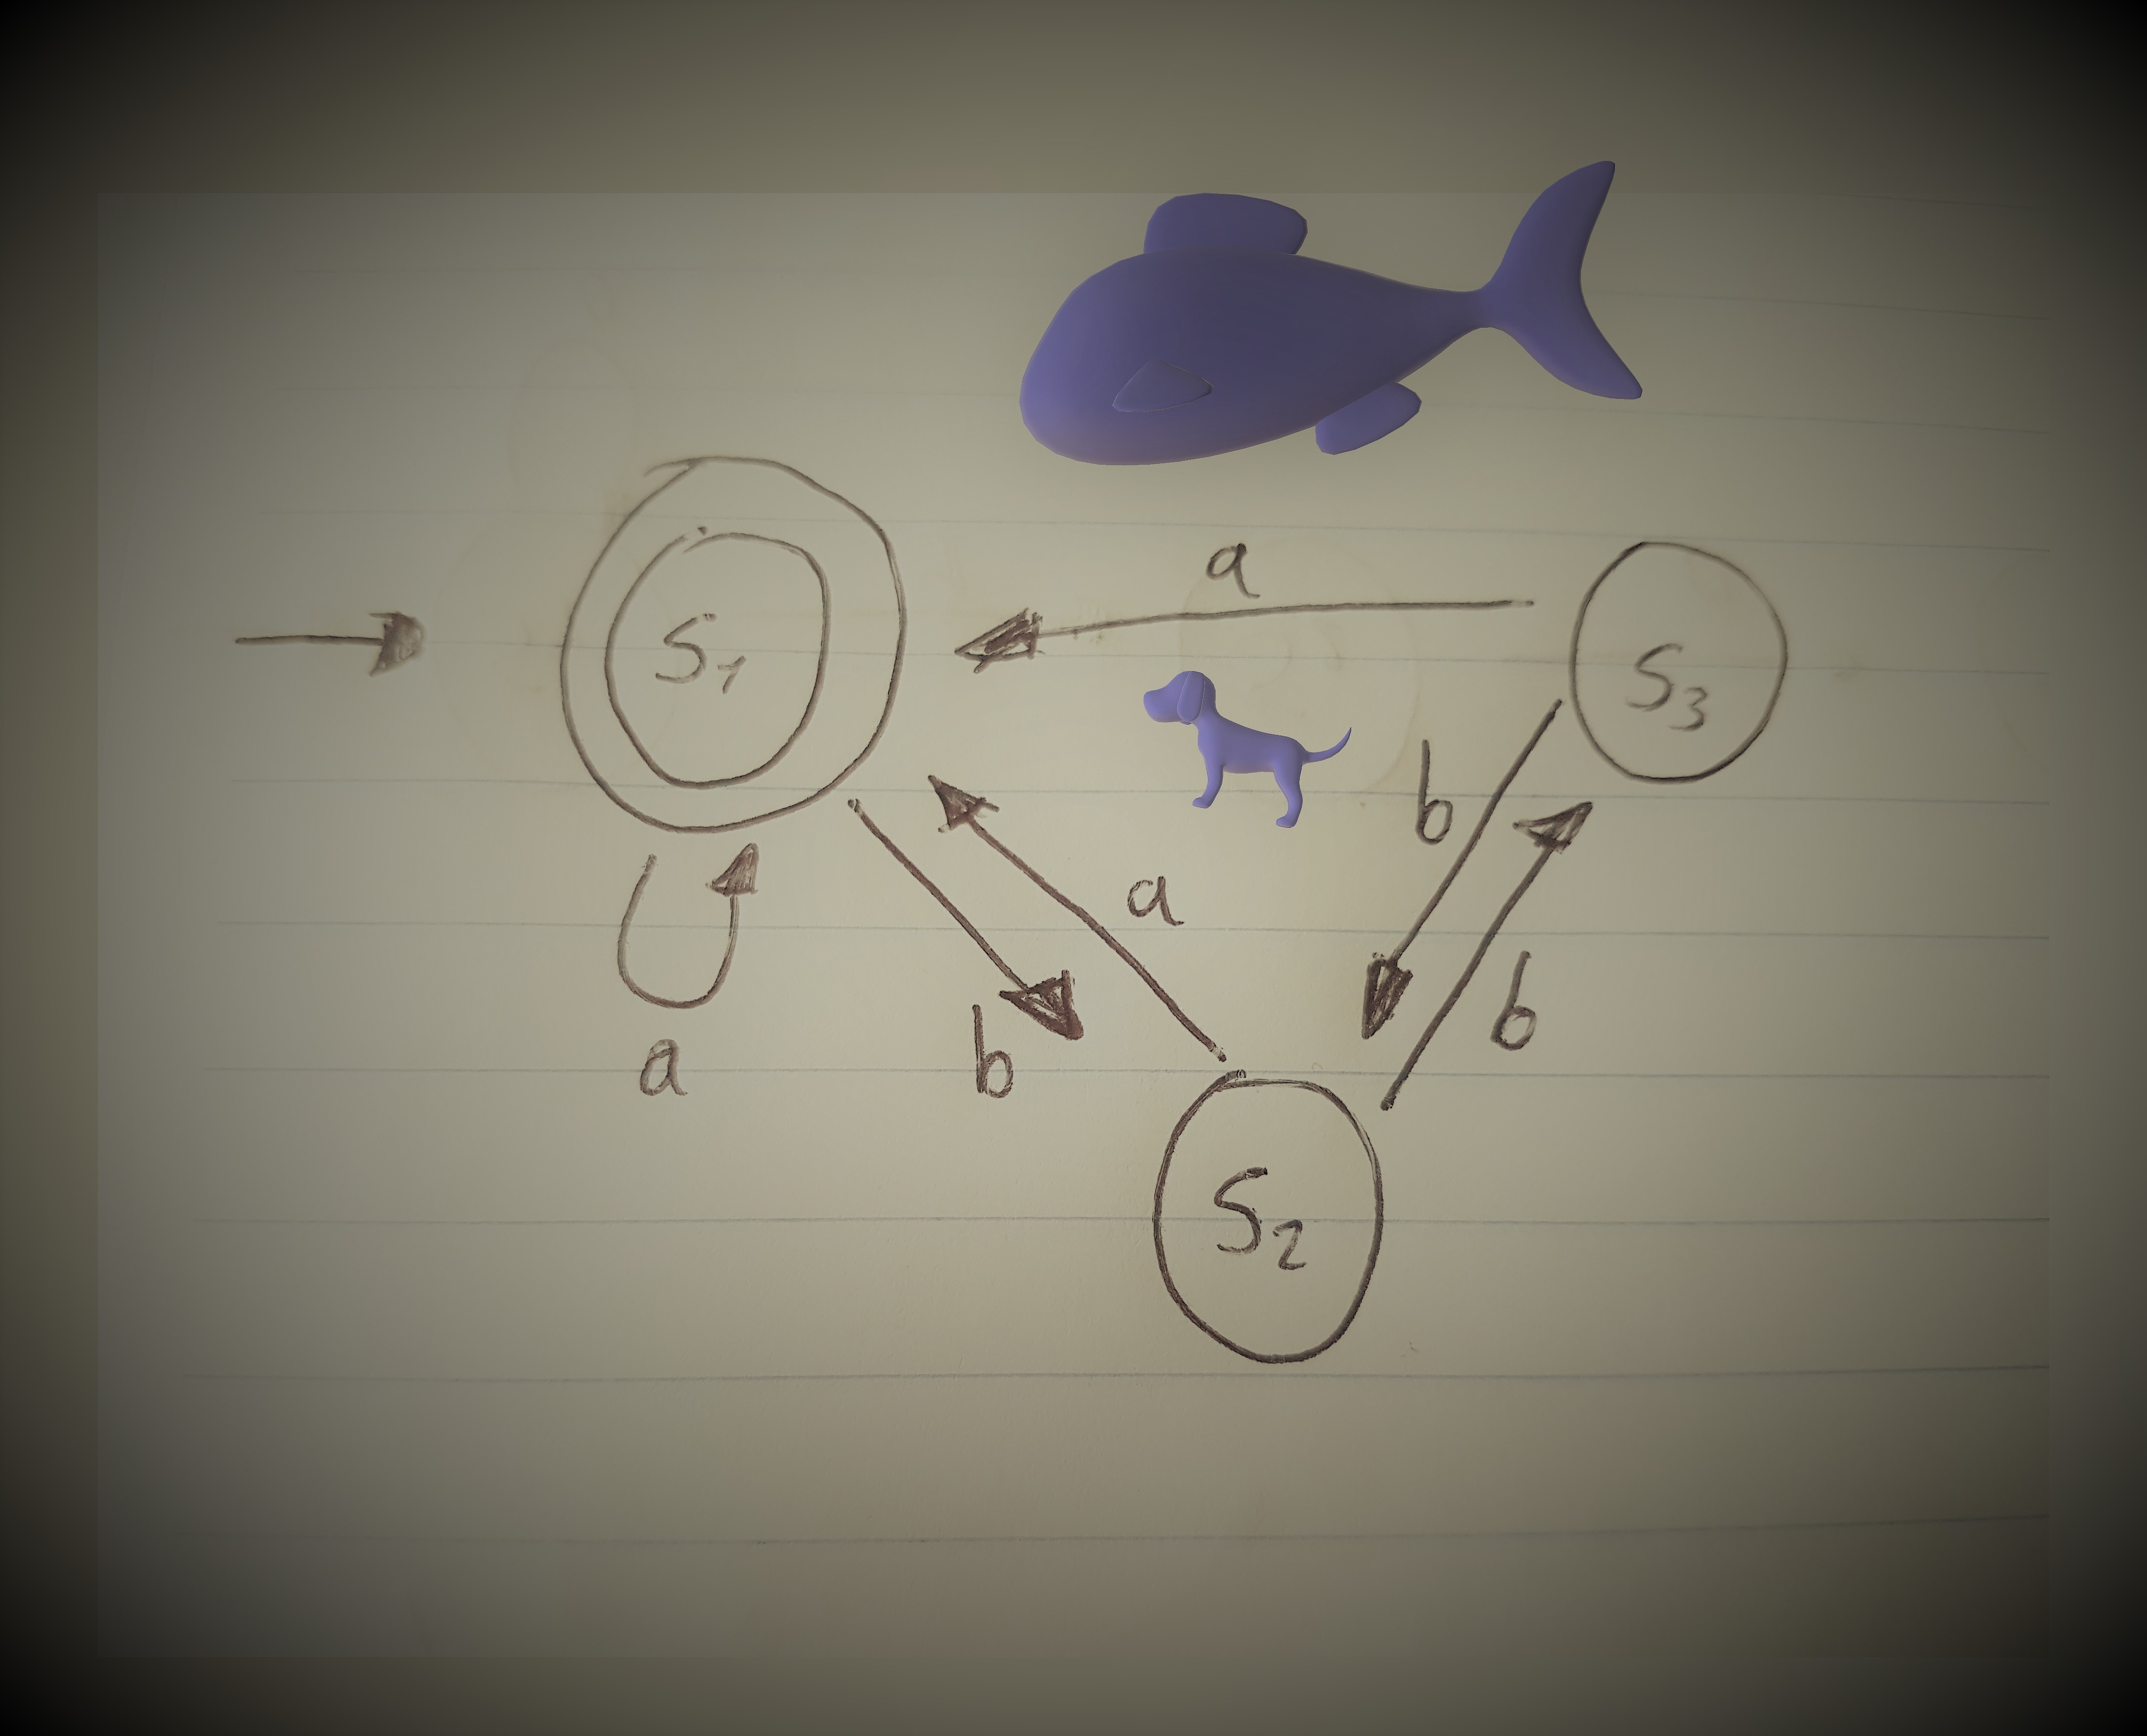 a
S1
S3
b
a
b
b
a
S2